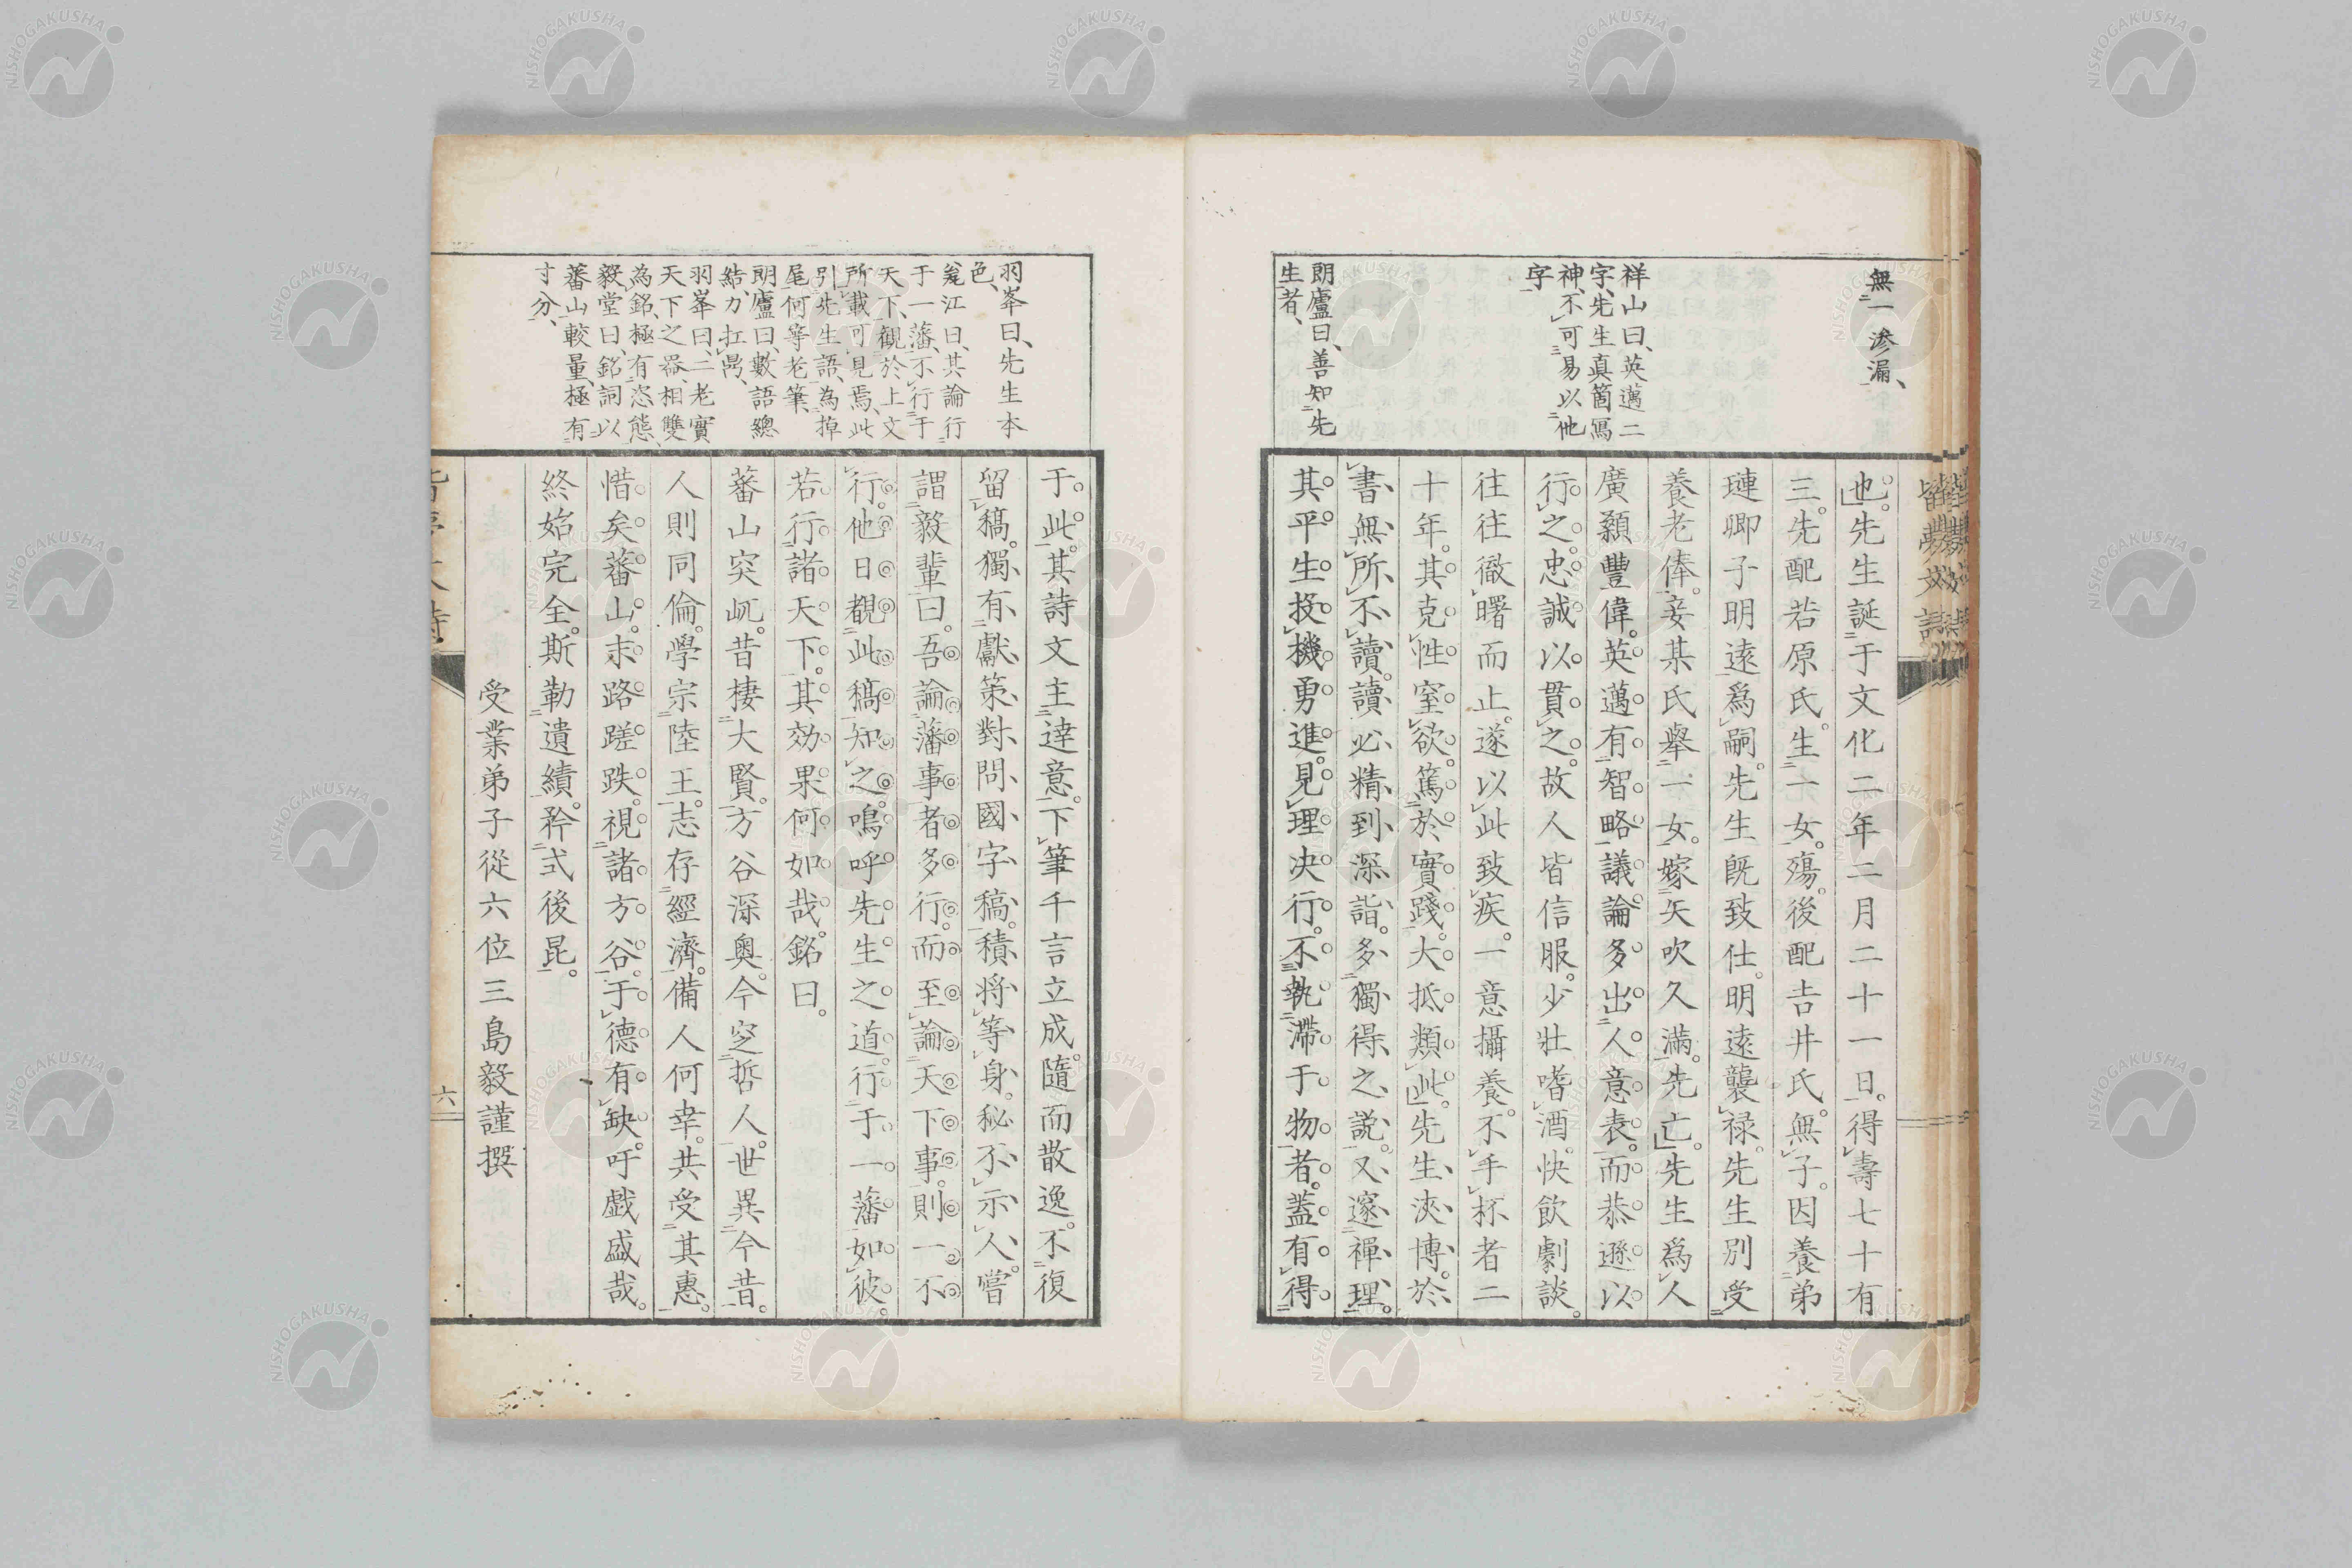 無一滲漏、
祥山曰、英邁二
字、先生真箇寫
神、不可易以他
字
朗廬曰、善知先
生者、
也。先生誕于文化二年二月二十一日。得壽七十有
三。先配若原氏。生一女。殤。後配吉井氏。無子。因養弟
璉卿子明遠爲嗣。先生既致仕。明遠襲禄。先生別受
養老俸。妾某氏舉一女。嫁矢吹久滿。先亡。先生爲人
廣顙豐偉。英邁有智略。議論多出人意表。而恭遜以
行之。忠誠以貫之。故人皆信服。少壯嗜酒。快飲劇談。
往往徹曙而止。遂以此致疾。一意攝養。不手杯者二
十年。其克性窒欲。篤於實踐。大抵類此。先生浹博、於
書無所不讀。讀必精到深詣。多獨得之説。又邃禪理。
其平生投機勇進。見理決行。不執滯于物者。蓋有得
羽峯曰、先生本
色、
甕江曰、其論行
于一藩、不行于
天下、觀於上文
所載可見焉、此
引先生語、為掉
尾、何等老筆、
朗廬曰、數語總
結、力扛鼎、
羽峯曰、二老實
天下之器、相雙
為銘、極有恣態
毅堂曰、銘詞以
蕃山較量、極有
寸分、
于此。其詩文主達意。下筆千言立成。隨而散逸。不復
留稿。獨有獻策對問國字稿。積將等身。秘不示人。嘗
謂毅輩曰。吾論藩事者多行。而至論天下事。則一不
行。他日覩此稿知之。嗚呼先生之道。行于一藩如彼。
若行諸天下。其効果何如哉。銘曰。
蕃山突屼。昔棲大賢。方谷深奧。今窆哲人。世異今昔。
人則同倫。學宗陸王。志存經濟。備人何幸。共受其惠。
惜矣蕃山。末路蹉跌。視諸方谷。于德有缺。吁戲盛哉。
終始完全。斯勒遺績。矜式後昆。
受業弟子從六位三島毅謹撰
六